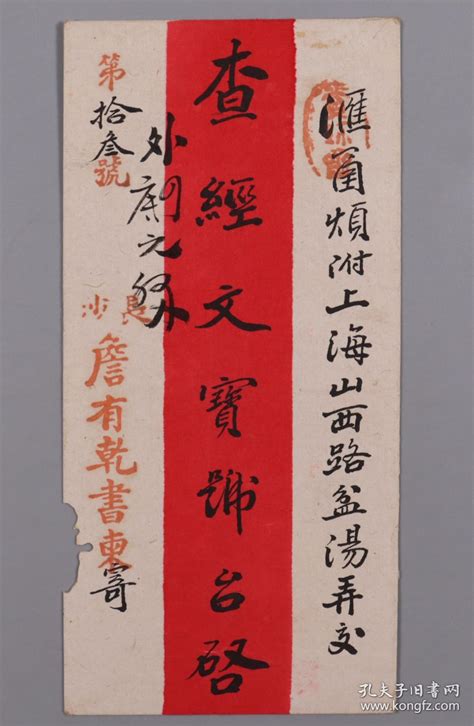 滙甬煩附上海山西路盆湯弄交
查經文寶號台啓
外
第拾叁號
長沙
詹有乾書柬寄
孔夫子旧书网
www.kongfz.com